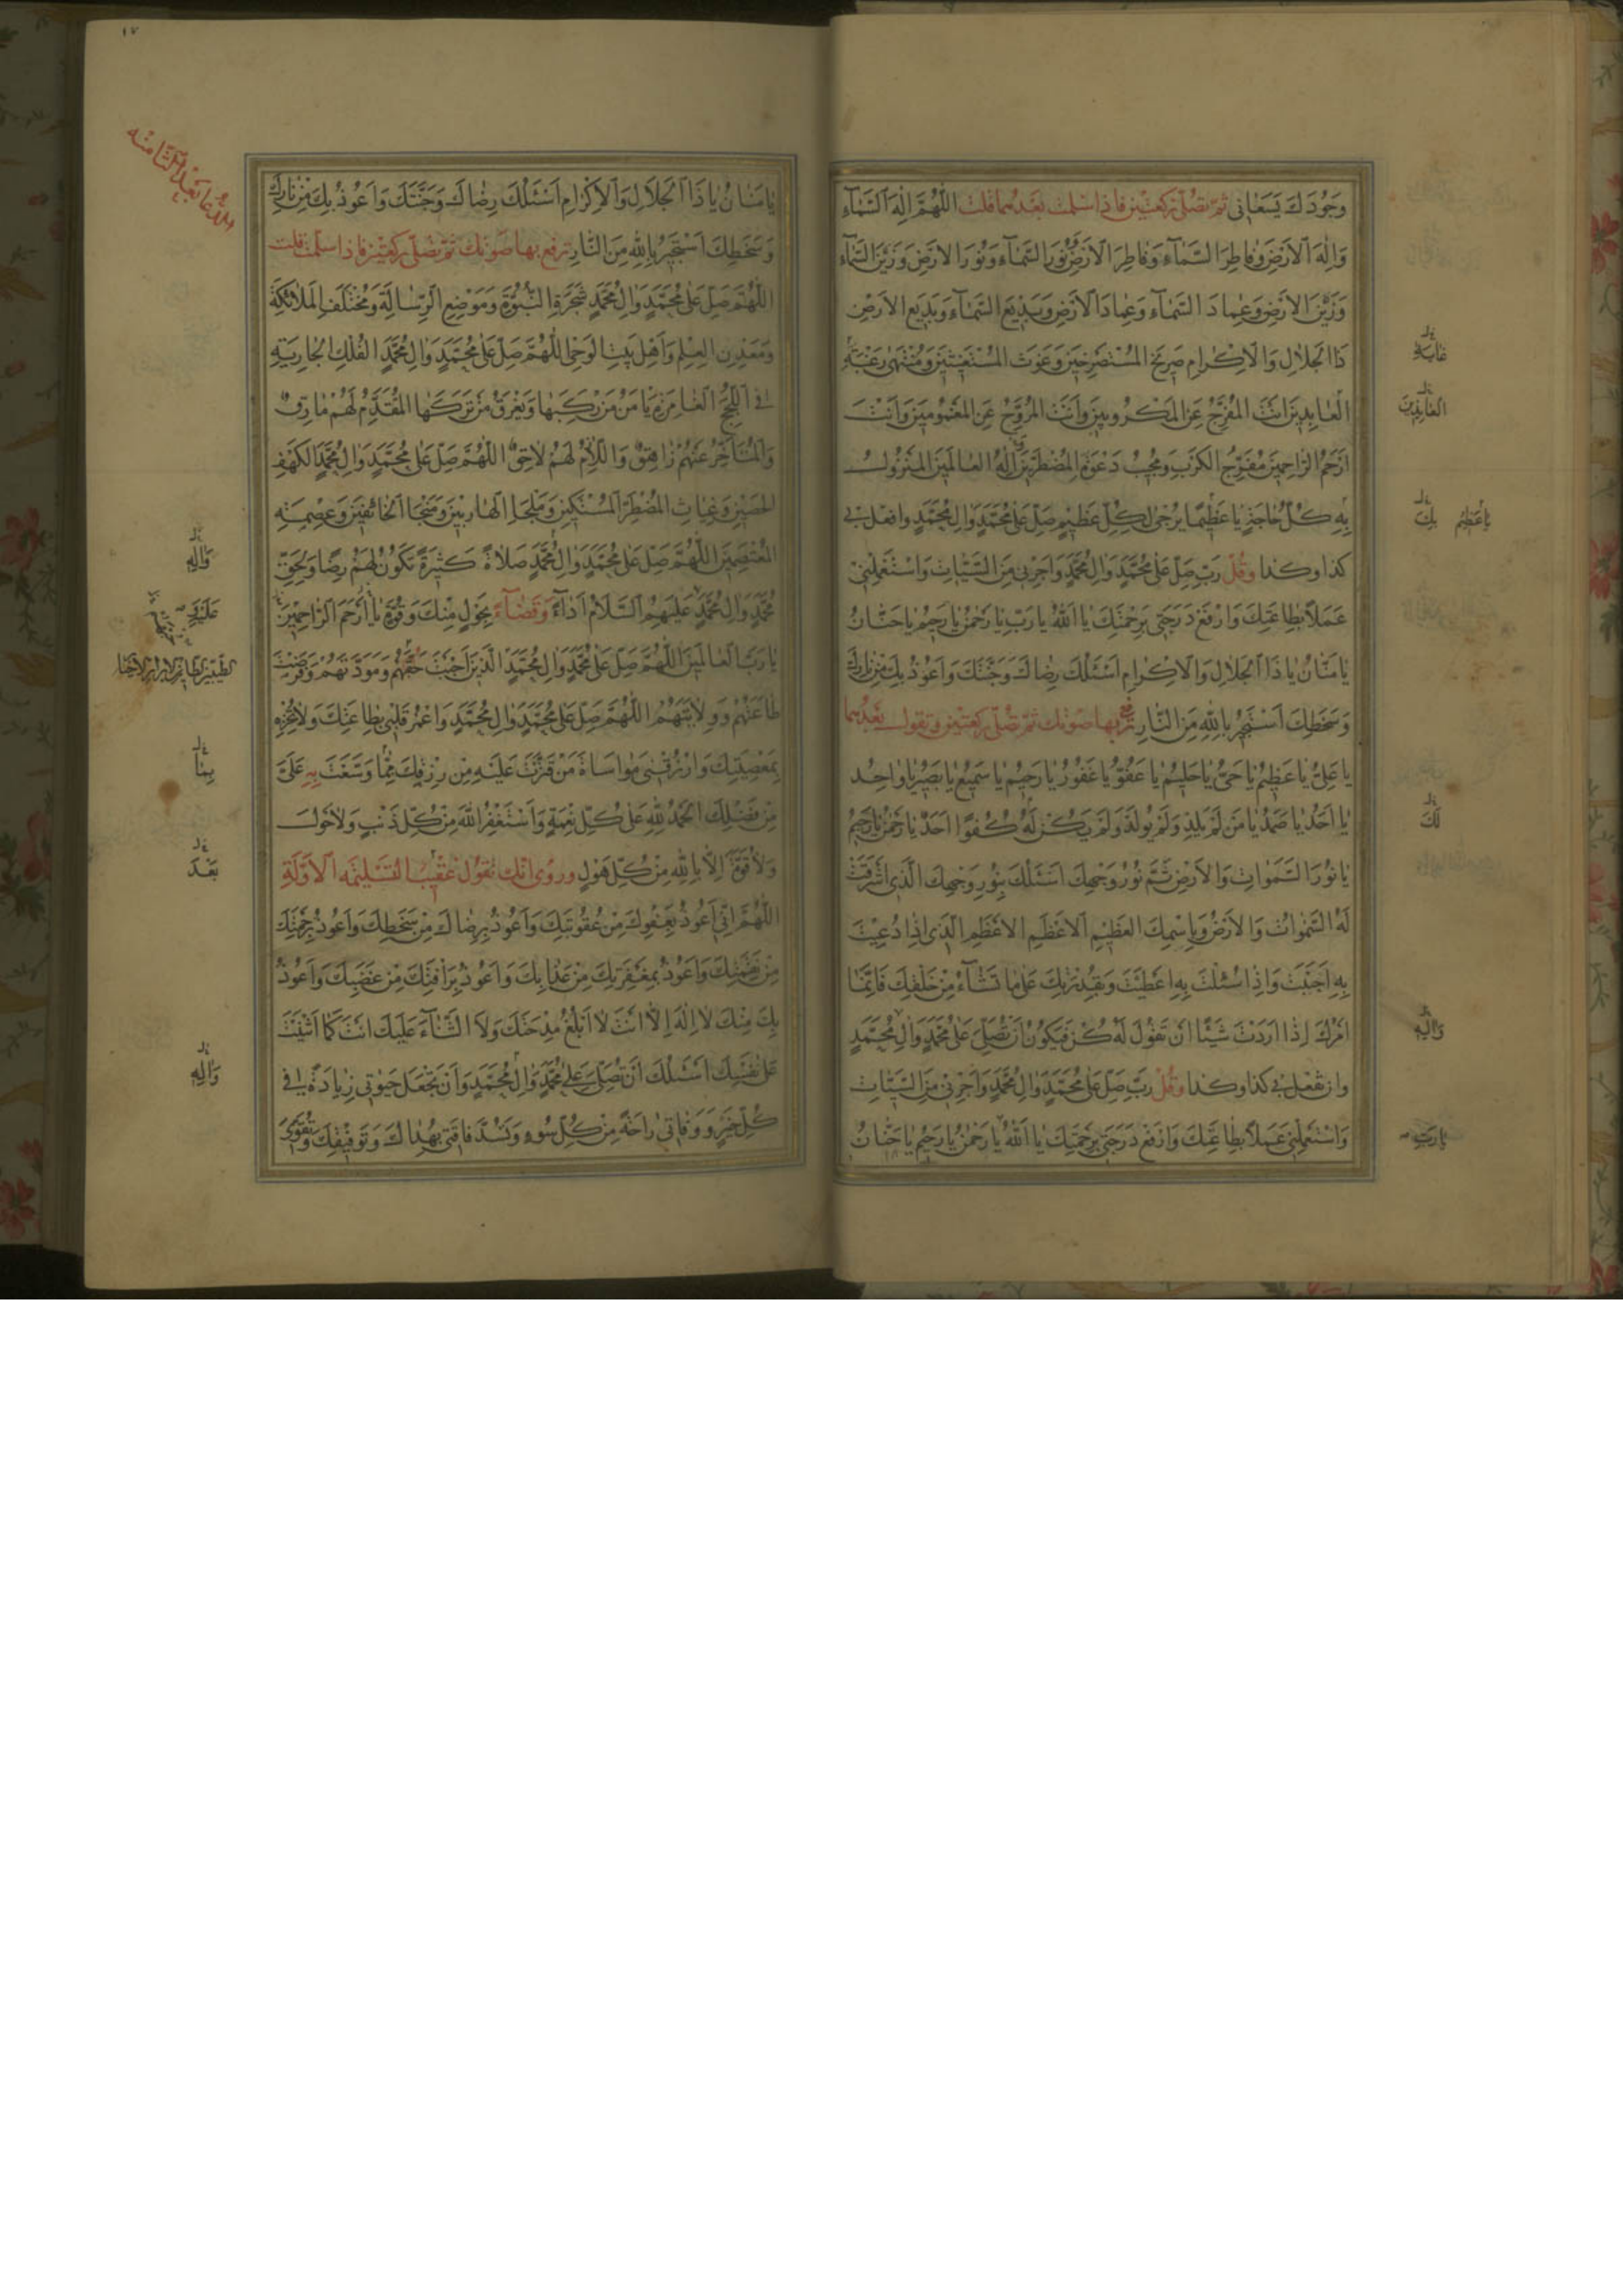 وَجُودَكَ يَسَعَانِى ثُمَّ تُصَلِّى رَكْعَتَيْنِ فَاِذَا سَلَّمْتَ بَعْدَهُمَا قُلْتَ اَللّٰهُمَّ اِلٰهَ السَّمَآءِ
وَاِلٰهَ الْاَرْضِ وَفَاطِرَ السَّمَآءِ وَفَاطِرَ الْاَرْضِ وَنُورَ السَّمَآءِ وَنُورَ الْاَرْضِ وَزَيْنَ السَّمَآءِ
وَزَيْنَ الْاَرْضِ وَعِمَادَ السَّمَآءِ وَعِمَادَ الْاَرْضِ وَبَدِيعَ السَّمَآءِ وَبَدِيعَ الْاَرْضِ
ذَا الْجَلَالِ وَالْاِكْرَامِ صَرِيخَ الْمُسْتَصْرِخِينَ وَغَوْثَ الْمُسْتَغِيثِينَ وَمُنْتَهٰى رَغْبَةِ
غَايَةِ
الْعَابِدِينَ اَنْتَ الْمُفَرِّجُ عَنِ الْمَكْرُوبِينَ وَاَنْتَ الْمُرَوِّحُ عَنِ الْمَغْمُومِينَ وَاَنْتَ
اَرْحَمُ الرَّاحِمِينَ مُفَرِّجُ الْكَرْبِ وَمُجِيبُ دَعْوَةِ الْمُضْطَرِّينَ اِلٰهُ الْعَالَمِينَ الْمَنْزُولُ
بِهِ كُلُّ حَاجَةٍ يَا عَظِيمًا يُرْجٰى لِكُلِّ عَظِيمٍ صَلِّ عَلٰى مُحَمَّدٍ وَالِ مُحَمَّدٍ وَافْعَلْ بِى
يَا عَظِيمُ بِكَ
كَذَا وَكَذَا وَقُلْ رَبِّ صَلِّ عَلٰى مُحَمَّدٍ وَالِ مُحَمَّدٍ وَاَجِرْنِى مِنَ السَّيِّئَاتِ وَاسْتَعْمِلْنِى
عَمَلًا بِطَاعَتِكَ وَارْفَعْ دَرَجَتِى بِرَحْمَتِكَ يَا اَللّٰهُ يَا رَبِّ يَا رَحْمٰنُ يَا رَحِيمُ يَا حَنَّانُ
يَا مَنَّانُ يَا ذَا الْجَلَالِ وَالْاِكْرَامِ اَسْئَلُكَ رِضَاكَ وَجَنَّتَكَ وَاَعُوذُ بِكَ مِنْ نَارِكَ
وَسَخَطِكَ اَسْتَجِيرُ بِاللّٰهِ مِنَ النَّارِ تَرْفَعُ بِهَا صَوْتَكَ ثُمَّ تُصَلِّى رَكْعَتَيْنِ وَتَقُولُ بَعْدَهُمَا
يَا عَلِىُّ يَا عَظِيمُ يَا حَىُّ يَا حَلِيمُ يَا عَفُوُّ يَا غَفُورُ يَا رَحِيمُ يَا سَمِيعُ يَا بَصِيرُ يَا وَاحِدُ
يَا اَحَدُ يَا صَمَدُ يَا مَنْ لَمْ يَلِدْ وَلَمْ يُولَدْ وَلَمْ يَكُنْ لَهُ كُفُوًا اَحَدٌ يَا رَحْمٰنُ يَا رَحِيمُ
لَكَ
يَا نُورَ السَّمٰوَاتِ وَالْاَرْضِ تَمَّ نُورُ وَجْهِكَ اَسْئَلُكَ بِنُورِ وَجْهِكَ الَّذِى اَشْرَقَتْ
لَهُ السَّمٰوَاتُ وَالْاَرْضُ وَبِاِسْمِكَ الْعَظِيمِ الْاَعْظَمِ الْاَعْظَمِ الْاَعْظَمِ الَّذِى اِذَا دُعِيتَ
بِهِ اَجَبْتَ وَاِذَا سُئِلْتَ بِهِ اَعْطَيْتَ وَبِقُدْرَتِكَ عَلٰى مَا تَشَآءُ مِنْ خَلْقِكَ فَاِنَّمَا
اَمْرُكَ اِذَا اَرَدْتَ شَيْئًا اَنْ تَقُولَ لَهُ كُنْ فَيَكُونُ اَنْ تُصَلِّىَ عَلٰى مُحَمَّدٍ وَالِ مُحَمَّدٍ
وَآلِهِ
وَاَنْ تَفْعَلَ بِى كَذَا وَكَذَا وَقُلْ رَبِّ صَلِّ عَلٰى مُحَمَّدٍ وَالِ مُحَمَّدٍ وَاَجِرْنِى مِنَ السَّيِّئَاتِ
وَاسْتَعْمِلْنِى عَمَلًا بِطَاعَتِكَ وَارْفَعْ دَرَجَتِى بِرَحْمَتِكَ يَا اَللّٰهُ يَا رَحْمٰنُ يَا رَحِيمُ يَا حَنَّانُ
يَا رَبِّ
١٧
الدُّعَا بَعْدَ الثَّامِنَه
يَا مَنَّانُ يَا ذَا الْجَلَالِ وَالْاِكْرَامِ اَسْئَلُكَ رِضَاكَ وَجَنَّتَكَ وَاَعُوذُ بِكَ مِنْ نَارِكَ
وَسَخَطِكَ اَسْتَجِيرُ بِاللّٰهِ مِنَ النَّارِ تَرْفَعُ بِهَا صَوْتَكَ ثُمَّ تُصَلِّى رَكْعَتَيْنِ فَاِذَا سَلَّمْتَ قُلْتَ
اَللّٰهُمَّ صَلِّ عَلٰى مُحَمَّدٍ وَالِ مُحَمَّدٍ شَجَرَةِ النُّبُوَّةِ وَمَوْضِعِ الرِّسَالَةِ وَمُخْتَلَفِ الْمَلٰئِكَةِ
وَمَعْدِنِ الْعِلْمِ وَاَهْلِ بَيْتِ الْوَحْىِ اَللّٰهُمَّ صَلِّ عَلٰى مُحَمَّدٍ وَالِ مُحَمَّدٍ الْفُلْكِ الْجَارِيَةِ
فِى اللُّجَجِ الْغَامِرَةِ يَامَنُ مَنْ رَكِبَهَا وَيَغْرَقُ مَنْ تَرَكَهَا الْمُتَقَدِّمُ لَهُمْ مَارِقٌ
وَالْمُتَاَخِّرُ عَنْهُمْ زَاهِقٌ وَاللَّازِمُ لَهُمْ لَاحِقٌ اَللّٰهُمَّ صَلِّ عَلٰى مُحَمَّدٍ وَالِ مُحَمَّدٍ الْكَهْفِ
الْحَصِينِ وَغِيَاثِ الْمُضْطَرِّ الْمُسْتَكِينِ وَمَلْجَاِ الْهَارِبِينَ وَمَنْجَا الْخَائِفِينَ وَعِصْمَةِ
الْمُعْتَصِمِينَ اَللّٰهُمَّ صَلِّ عَلٰى مُحَمَّدٍ وَالِ مُحَمَّدٍ صَلَاةً كَثِيرَةً تَكُونُ لَهُمْ رِضًا وَلِحَقِّ
وَآلِهِ
مُحَمَّدٍ وَالِ مُحَمَّدٍ عَلَيْهِمُ السَّلَامُ اَدَآءً وَقَضَآءً بِحَوْلٍ مِنْكَ وَقُوَّةٍ يَا اَرْحَمَ الرَّاحِمِينَ
يَا رَبَّ الْعَالَمِينَ اَللّٰهُمَّ صَلِّ عَلٰى مُحَمَّدٍ وَالِ مُحَمَّدٍ الَّذِينَ اَوْجَبْتَ حَقَّهُمْ وَمَوَدَّتَهُمْ وَفَرَضْتَ
طَاعَتَهُمْ وَوِلَايَتَهُمْ اَللّٰهُمَّ صَلِّ عَلٰى مُحَمَّدٍ وَالِ مُحَمَّدٍ وَاعْمُرْ قَلْبِى بِطَاعَتِكَ وَلَا تُخْزِهِ
بِمَعْصِيَتِكَ وَارْزُقْنِى مُوَاسَاةَ مَنْ قَتَّرْتَ عَلَيْهِ مِنْ رِزْقِكَ مِمَّا وَسَّعْتَ بِهِ عَلَىَّ
بِمَا
مِنْ فَضْلِكَ اَلْحَمْدُ لِلّٰهِ عَلٰى كُلِّ نِعْمَةٍ وَاَسْتَغْفِرُ اللّٰهَ مِنْ كُلِّ ذَنْبٍ وَلَا حَوْلَ
وَلَا قُوَّةَ اِلَّا بِاللّٰهِ مِنْ كُلِّ هَوْلٍ وَرُوِىَ اَنَّكَ تَقُولُ عَقِيبَ التَّسْلِيمَةِ الْاَوَّلَةِ
بَعْدَ
اَللّٰهُمَّ اِنِّى اَعُوذُ بِعَفْوِكَ مِنْ عُقُوبَتِكَ وَاَعُوذُ بِرِضَاكَ مِنْ سَخَطِكَ وَاَعُوذُ بِرَحْمَتِكَ
مِنْ نَقِمَتِكَ وَاَعُوذُ بِمَغْفِرَتِكَ مِنْ عَذَابِكَ وَاَعُوذُ بِرَاْفَتِكَ مِنْ غَضَبِكَ وَاَعُوذُ
بِكَ مِنْكَ لَا اِلٰهَ اِلَّا اَنْتَ لَا اَبْلُغُ مِدْحَتَكَ وَلَا الثَّنَآءَ عَلَيْكَ اَنْتَ كَمَا اَثْنَيْتَ
عَلٰى نَفْسِكَ اَسْئَلُكَ اَنْ تُصَلِّىَ عَلٰى مُحَمَّدٍ وَالِ مُحَمَّدٍ وَاَنْ تَجْعَلَ حَيٰوتِى زِيَادَةً لِى فِى
وَآلِهِ
كُلِّ خَيْرٍ وَوَفَاتِى رَاحَةً مِنْ كُلِّ سُوءٍ وَتَسُدَّ فَاقَتِى بِهُدَاكَ وَتَوْفِيقِكَ وَتُقَوِّىَ